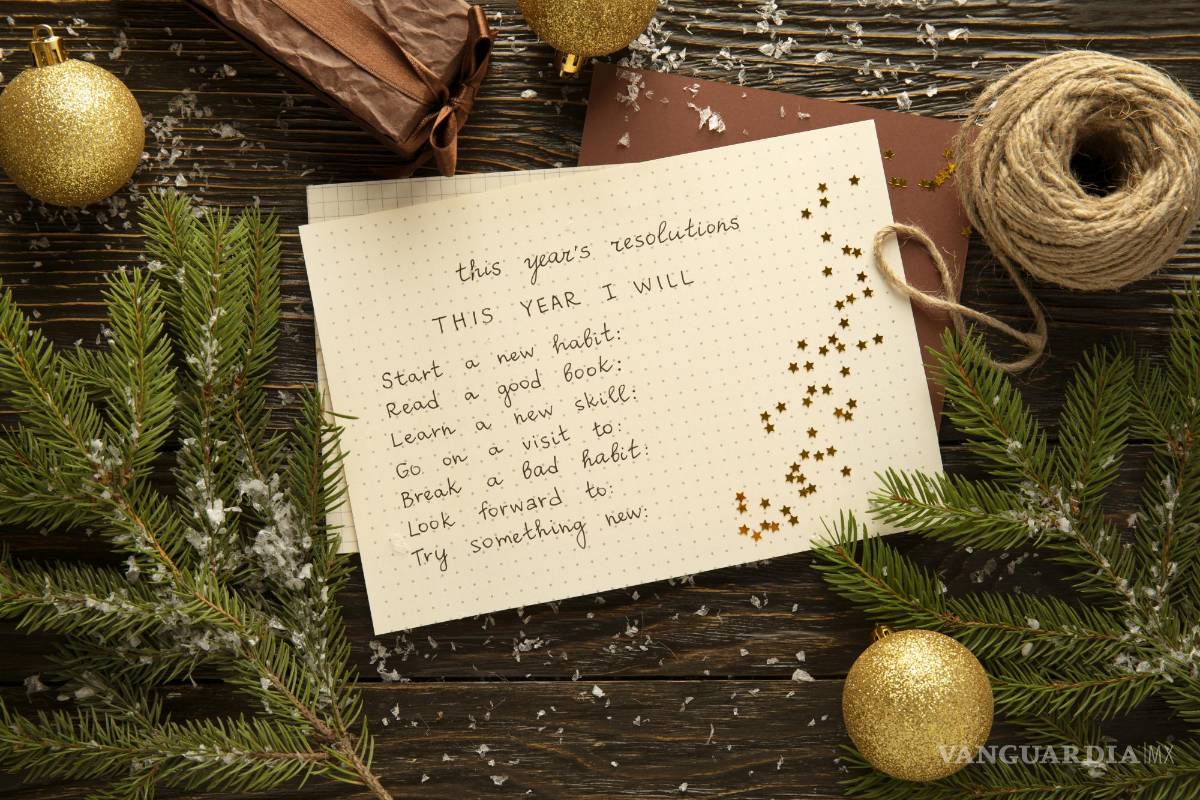 this year's resolutions
THIS YEAR I WILL
Start a new habit:
Read a good book:
Learn a new skill:
Go on a visit to:
Break a bad habit:
Look forward to:
Try something new:
VANGUARDIA|MX